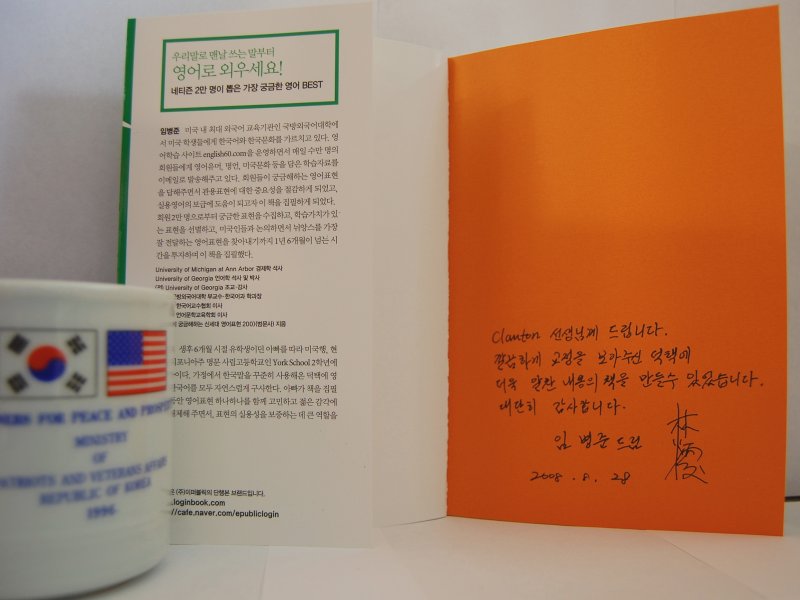 우리말로 맨날 쓰는 말부터
영어로 외우세요!
네티즌 2만 명이 뽑은 가장 궁금한 영어 BEST
임병준 미국 내 최대 외국어 교육기관인 국방외국어대학에
서 미국 학생들에게 한국어와 한국문화를 가르치고 있다. 영
어학습 사이트 english60.com을 운영하면서 매일 수만 명의
회원들에게 영어유머, 명언, 미국문화 등을 담은 학습자료를
이메일로 발송해주고 있다. 회원들이 궁금해하는 영어표현
을 답해주면서 관용표현에 대한 중요성을 절감하게 되었고,
실용영어의 보급에 도움이 되고자 이 책을 집필하게 되었다.
회원 2만 명으로부터 궁금한 표현을 수집하고, 학습가치가 있
는 표현을 선별하고, 미국인들과 논의하면서 뉘앙스를 가장
잘 전달하는 영어표현을 찾아내기까지 1년 6개월이 넘는 시
간을 투자하여 이 책을 집필했다.
University of Michigan at Ann Arbor 경제학 석사
University of Georgia 언어학 석사 및 박사
(전) University of Georgia 조교·강사
국방외국어대학 부교수·한국어과 학과장
한국어교수협회 이사
언어문학교육학회 이사
궁금해하는 신세대 영어표현 200》(범문사) 지음
생후 6개월 시절 유학생이던 아빠를 따라 미국행, 현
포니아주 명문 사립고등학교인 York School 2학년에
이다. 가정에서 한국말을 꾸준히 사용해온 덕택에 영
한국어를 모두 자연스럽게 구사한다. 아빠가 책을 집필
동안 영어표현 하나하나를 함께 고민하고 젊은 감각에
대체해 주면서, 표현의 실용성을 보증하는 데 큰 역할을
은 (주)이퍼블릭의 단행본 브랜드입니다.
.loginbook.com
//cafe.naver.com/epubliclogin
Clanton 선생님께 드립니다.
꼼꼼하게 교정을 보아주신 덕택에
더욱 알찬 내용의 책을 만들수 있었습니다.
대단히 감사합니다.
임 병준 드림
林
2008. 8. 28
NERS FOR PEACE AND PROSPE
MINISTRY
OF
PATRIOTS AND VETERANS AFFAI
REPUBLIC OF KOREA
1996